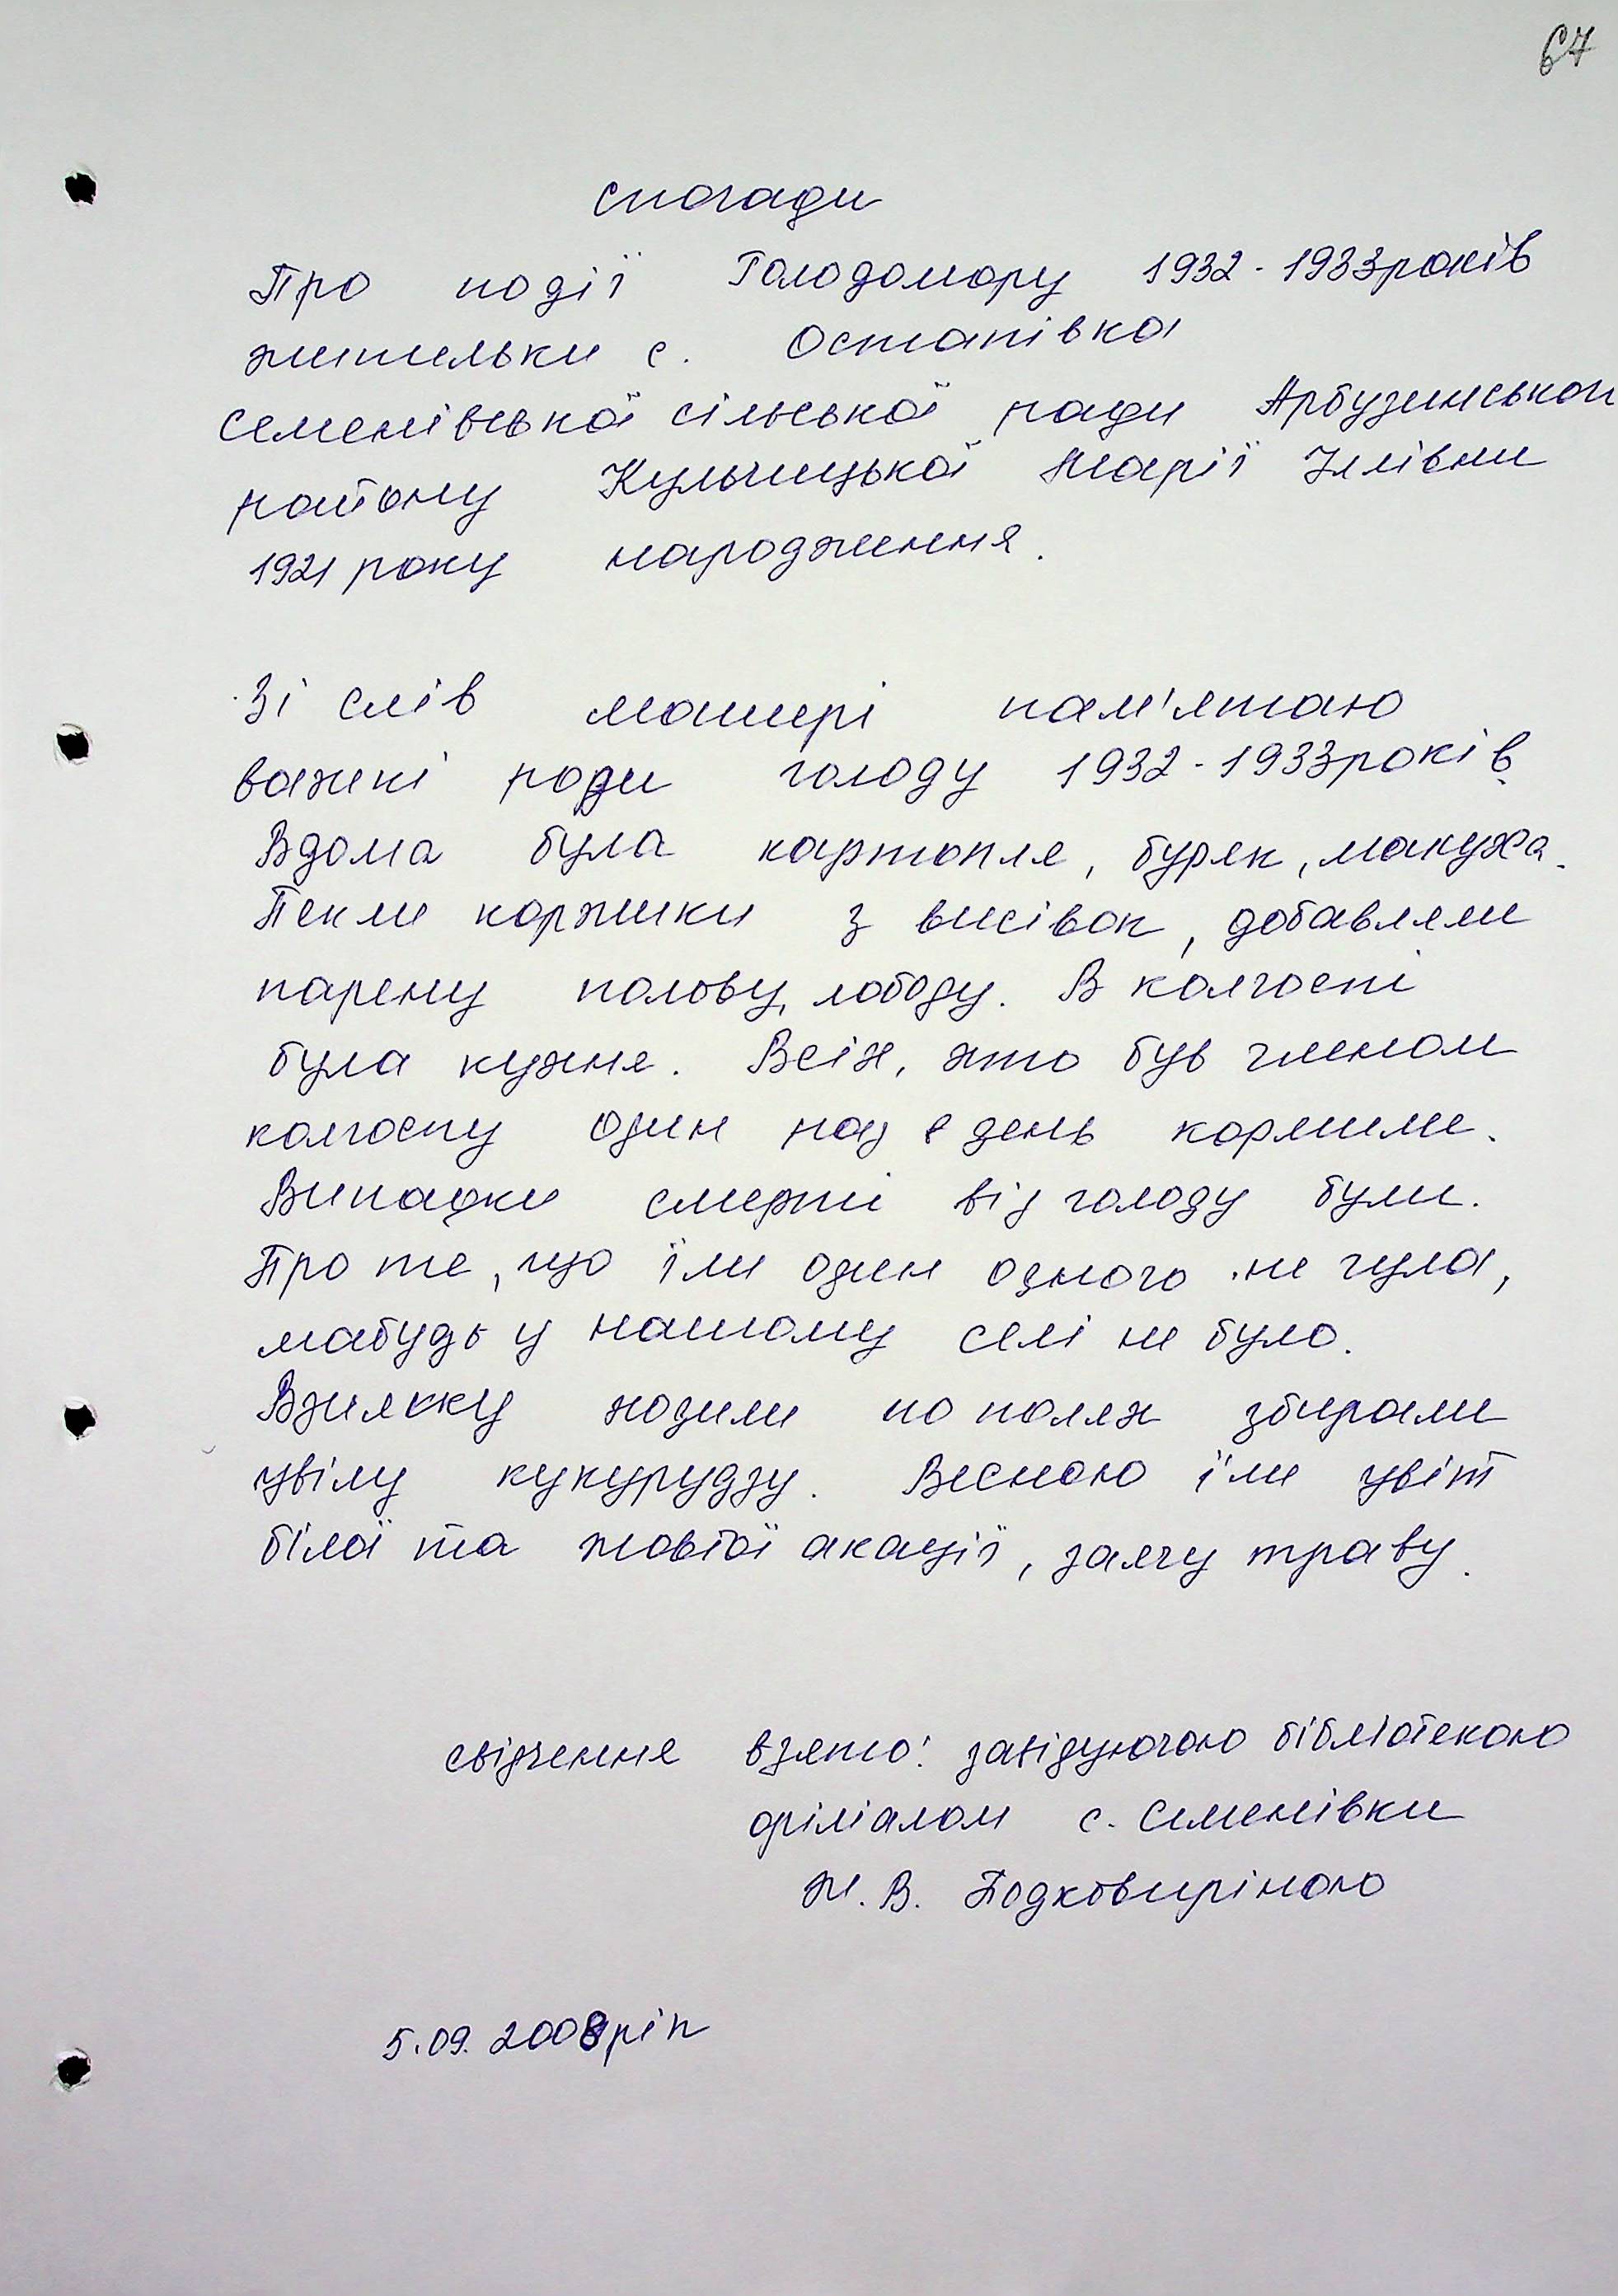 67
Спогади
Про події Голодомору 1932-1933років
жительки с. Остапівка
Семенівської сільської ради Арбузинської
району Кульчицької Марії Іллівни
1921 року народження.
Зі слів матері пам'ятаю
важкі роди голоду 1932-1933років.
Вдома була картопля, буряк, макуха.
Пекли коржики з висівок, добавляли
парену полову, лободу. В колгоспі
була кухня. Всіх, хто був членом
колгоспу один раз в день кормили.
Випадки смерті від голоду були.
Про те, що їли один одного не чула,
мабудь у нашому селі не було.
Взимку ходили по полях збирали
цвілу кукурудзу. Весною їли цвіт
білої та жовтої акації, заячу траву.
свідчення взято: завідуючою бібліотекою
філіалом с. Семенівки
Н.В. Подковиріною
5.09.2008рік